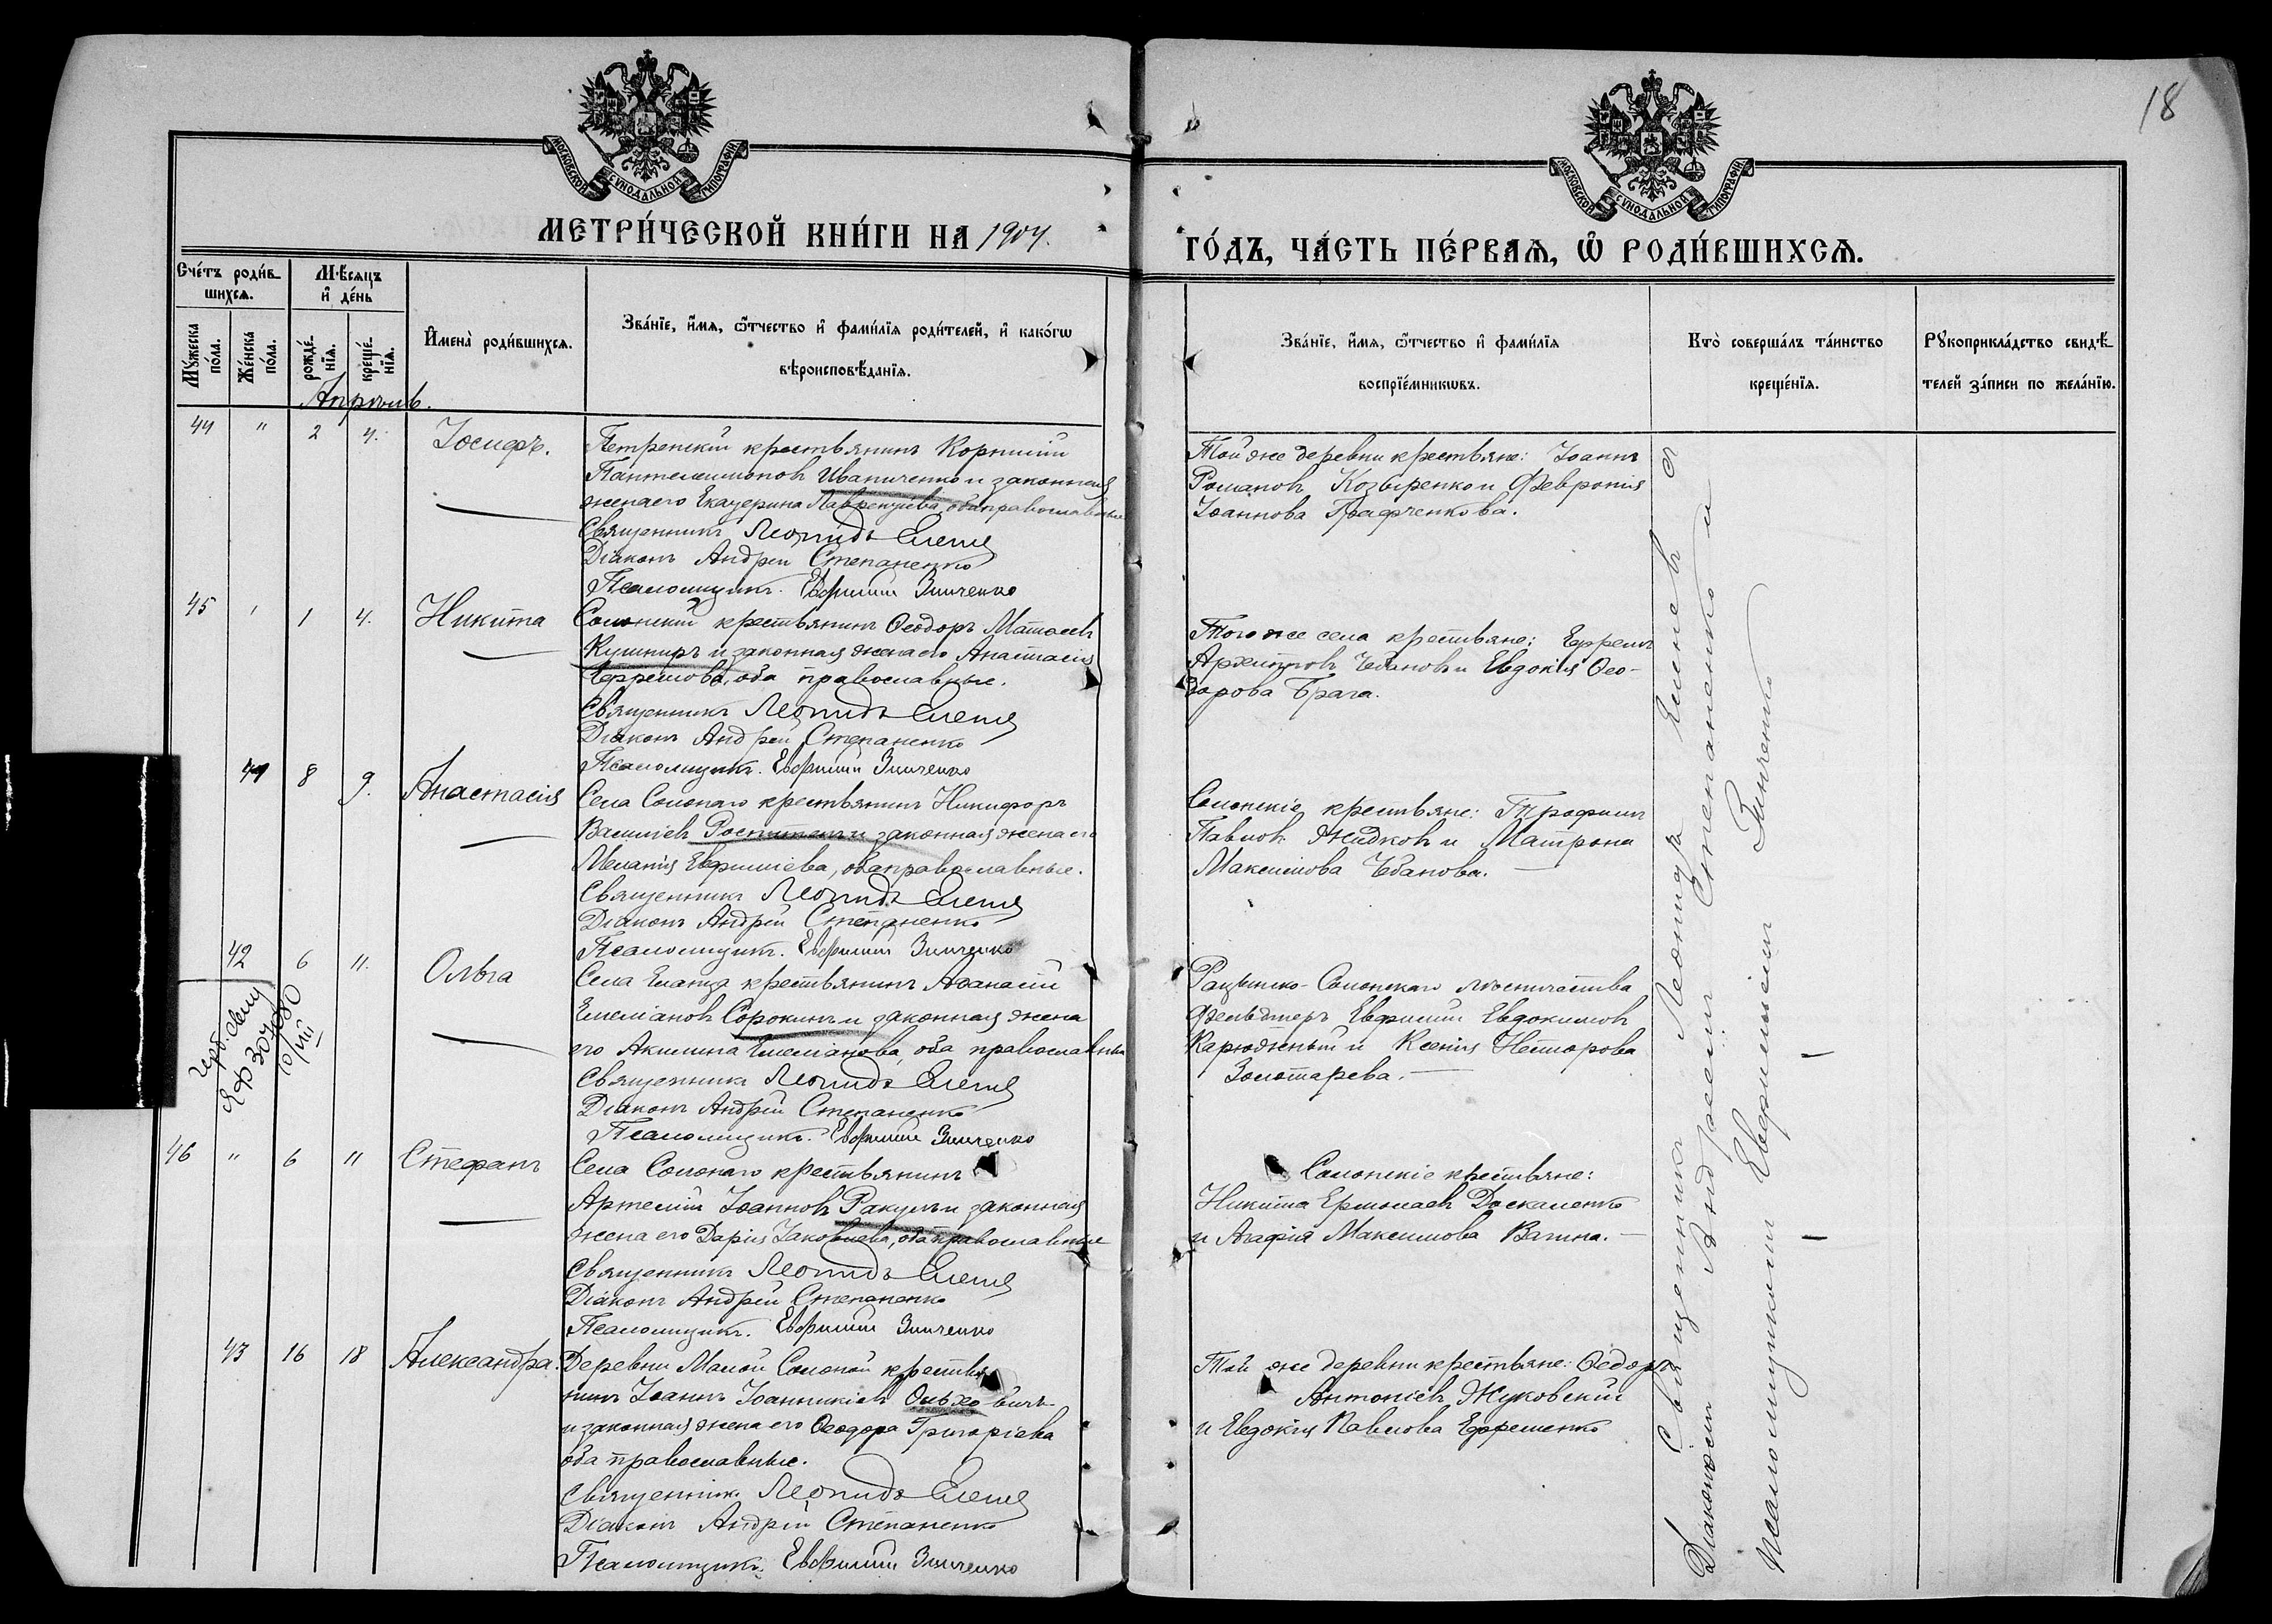 18
МОСКОВСКОЙ СѴНОДАЛЬНОЙ ТИПОГРАФІИ
МОСКОВСКОЙ СѴНОДАЛЬНОЙ ТИПОГРАФІИ
МЕТРИ́ЧЕСКОЙ КНИ́ГИ НА 1904.
ГО́ДЪ, ЧА́СТЬ ПЕ́РВАѦ, Ѽ РОДИ́ВШИХСѦ.
Сче́тъ роди́в-
шихсѧ.
Мꙋ́жеска
по́ла.
Же́нска
по́ла.
Мѣ́сѧцъ
и҆ де́нь
рожде́-
нїѧ.
креще́-
нїѧ.
И҆мена̀ роди́вшихсѧ.
Зва́нїе, и҆́мѧ, ѻ҆́тчество и҆ фами́лїѧ роди́телей, и҆ како́гѡ
вѣроисповѣ́данїѧ.
Зва́нїе, и҆́мѧ, ѻ҆́тчество и҆ фами́лїѧ
воспрїе́мникѡвъ.
Кто̀ соверша́лъ та́инство
креще́нїѧ.
Рꙋкоприкла́дство свидѣ́-
телей за́писи по жела́нїю.
Апрѣль.
44 " 2 4. Іосифъ.
Петренскій крестьянинъ Корнилій
Пантелеимоновъ Иваниченко и законная
жена его Екатерина Лаврентіева, оба православные
Священникъ Леонидъ
Діаконъ Андрей Степаненко
Псаломщикъ. Евфимій Зинченко
Той же деревни крестьяне: Іоаннъ
Романовъ Козыренко и Февронія
Іоаннова Графченкова.
45 " 1 4. Никита
Солонскій крестьянинъ Ѳеодоръ
Кушниръ и законная жена его Анастасія
Ефремова, оба православные.
Священникъ Леонидъ
Діаконъ Андрей Степаненко
Псаломщикъ. Евфимій Зинченко
Того же села крестьяне: Ефремъ
Архиповъ Чбановъ и Евдокія Ѳео-
дорова Брага.
41 8 9. Анастасія
Села Солонаго крестьянинъ Никифоръ
Васильевъ и законная жена его
Меланія Евфиміева, оба православные.
Священникъ Леонидъ
Діаконъ Андрей Степаненко
Псаломщикъ. Евфимій Зинченко
Солонскіе крестьяне: Трофимъ
Павловъ Жидковъ и Матрона
Максимова Чбанова.
42 6 11. Ольга
Села Еланца крестьянинъ Аѳанасій
Емеліановъ Сорокинъ и законная жена
его Акилина Емеліанова, оба православные
Священникъ Леонидъ
Діаконъ Андрей Степаненко
Псаломщикъ. Евфимій Зинченко
Рацынско-Солонскаго лѣсничества
фельдшеръ Евфимій Евдокимовъ
и Ксенія Несторова
Золотарева.
46 " 6 11 Стефанъ
Села Солонаго крестьянинъ
Артемій Іоанновъ Ракулъ и законная
жена его Дарія Іаковлева, оба православные
Священникъ Леонидъ
Діаконъ Андрей Степаненко
Псаломщикъ. Евфимій Зинченко
Солонскіе крестьяне:
Никита Ермолаевъ Доскаленко
и Агафія Максимова Вагина.
43 16 18 Александра.
Деревни Малой Солоной крестья-
нинъ Іоаннъ Іоанникіевъ Ольховичъ
и законная жена его Ѳеодора Григоріева
оба православные.
Священникъ Леонидъ
Діаконъ Андрей Степаненко
Псаломщикъ. Евфимій Зинченко
Той же деревни крестьяне: Ѳедоръ
Антоніевъ Жуковскій
и Евдокія Павлова Ефременко
Священникъ Леонидъ съ
Діакономъ Андреемъ Степаненко и
Псаломщикомъ Евфиміемъ Зинченко